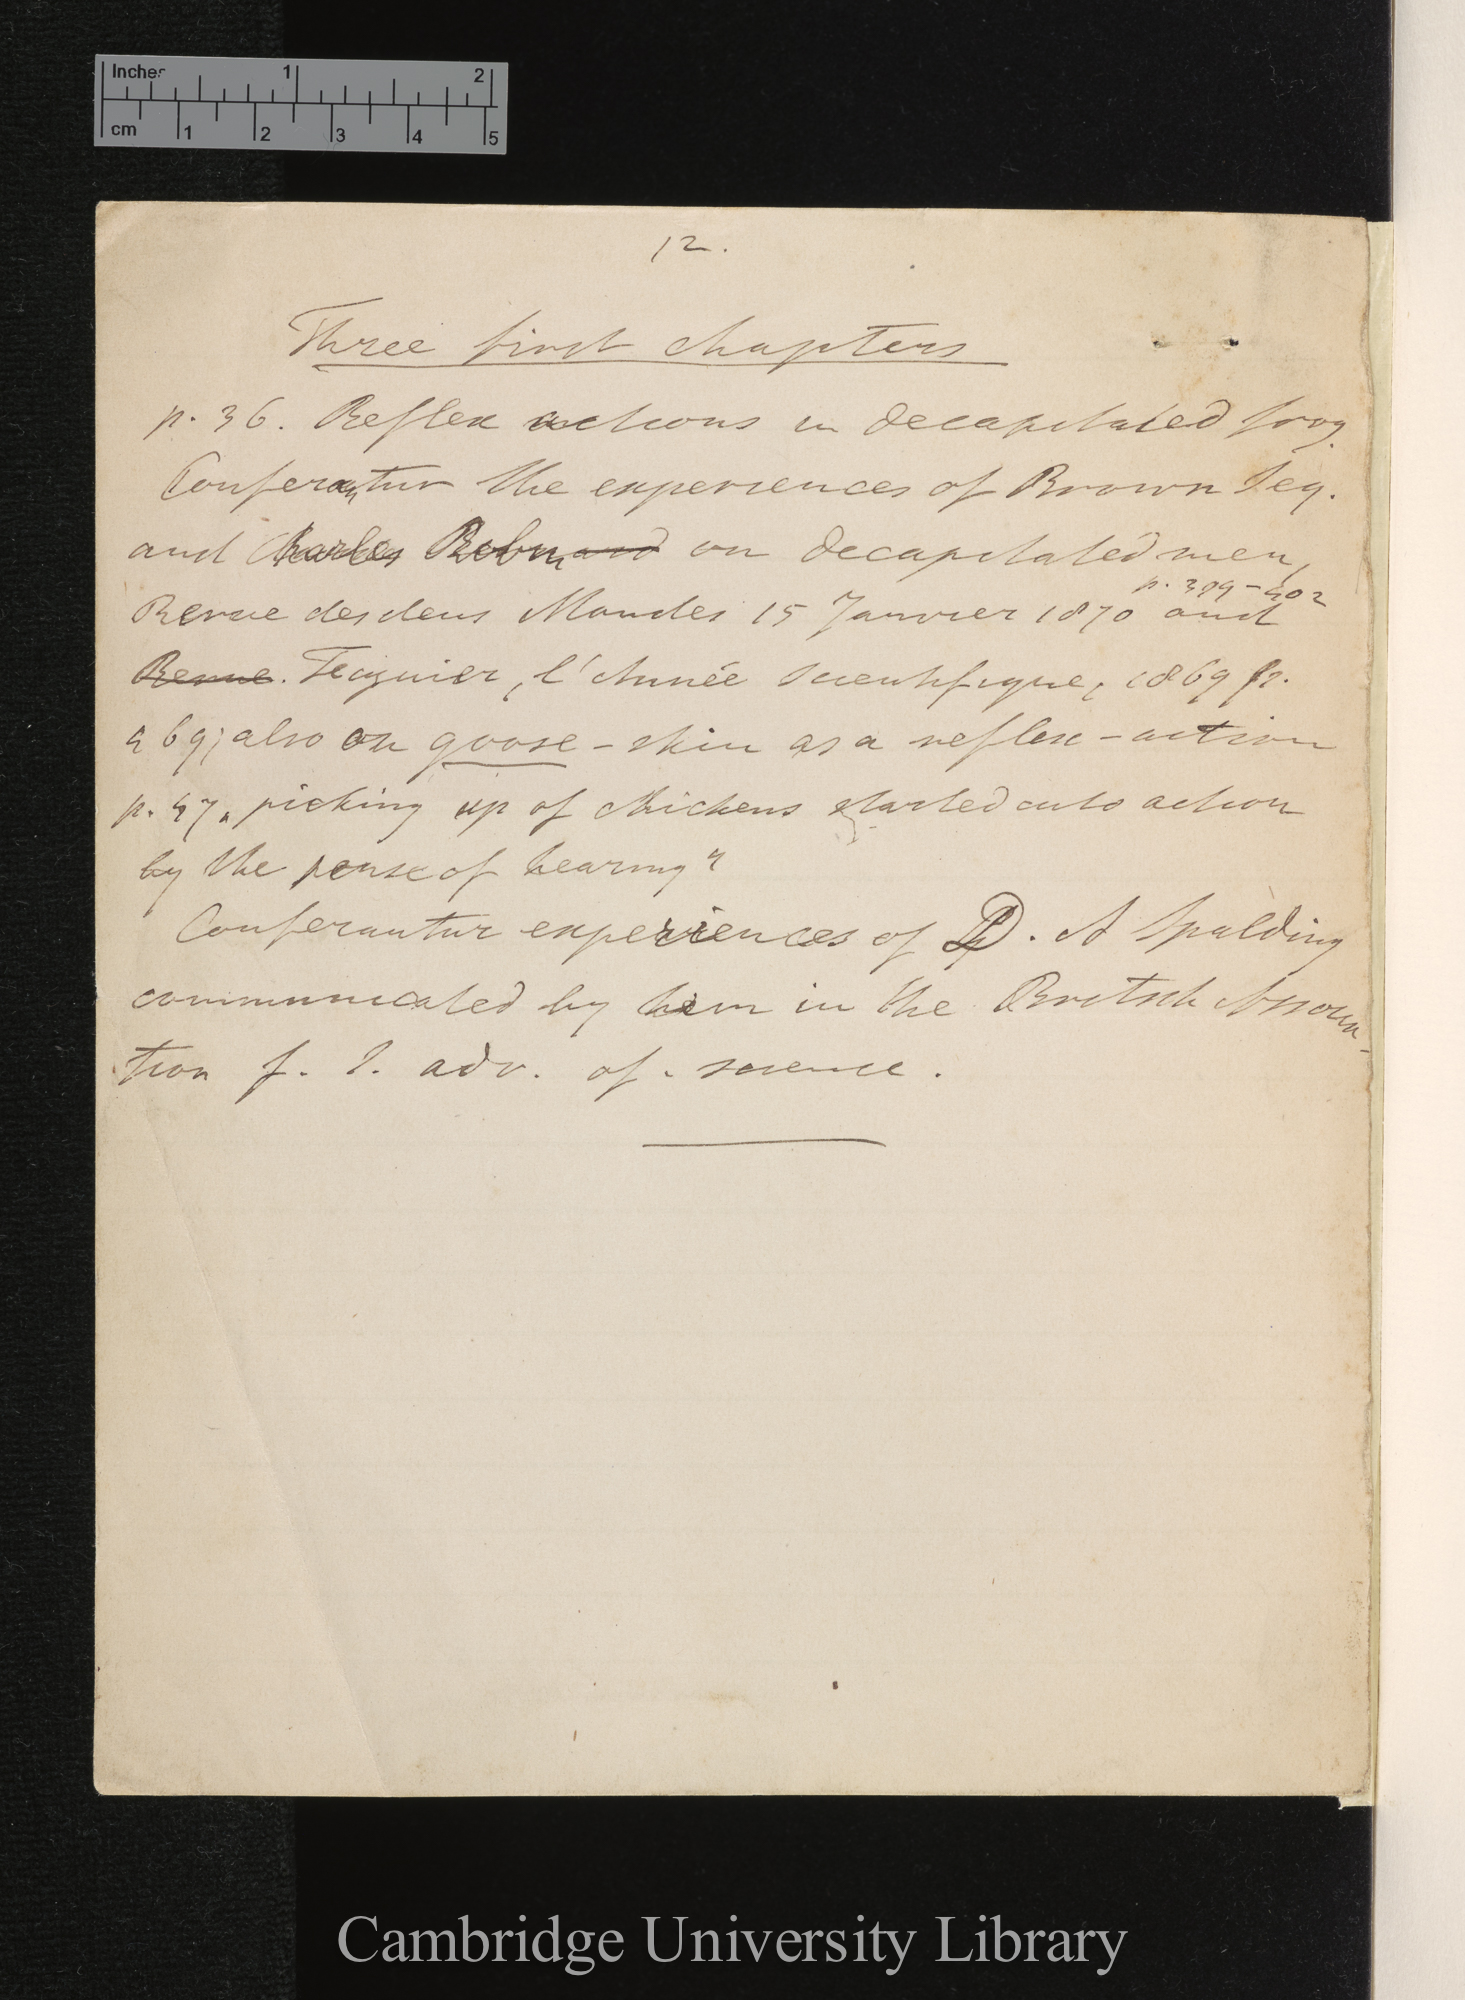 Inches 1 2
cm 1 2 3 4 5
12.
Three first chapters
p. 36. Reflex actions in decapitated frog.
Conferantur the experiences of Brown Seq.
and Charles Robin on decapitated men,
p. 399-402
Revue des deus Mondes 15 Janvier 1870 and
Revue. l'Année scientifique, 1869 p.
969; also on goose-skin as a reflex-action
p. 47. picking up of chickens started into action
by the sense of hearing"
Conferantur experiences of D. A Spalding
communicated by him in the British Associa-
tion f. t. adv. of. science.
Cambridge University Library